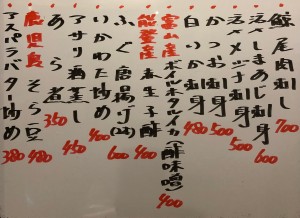 鯨尾肉刺し 700
活〆しまあじ刺身 600
活〆メジナ刺身 500
白いか刺身 500
白えび刺身 480
富山産ボイルホタルイカ(酢味噌) 400
能登産赤生子酢 400
ふぐ唐揚げ 600
いかわた炒め 400
アサリ酒蒸し 450
あら煮 350
鹿児島そら豆 480
アスパラバター炒め 380